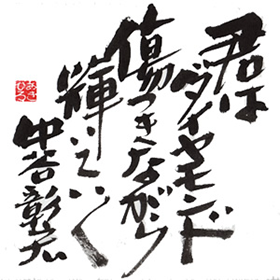 君は
ダイヤモンド
傷つきながら
輝いていく
中谷彰宏
あき
ひろ